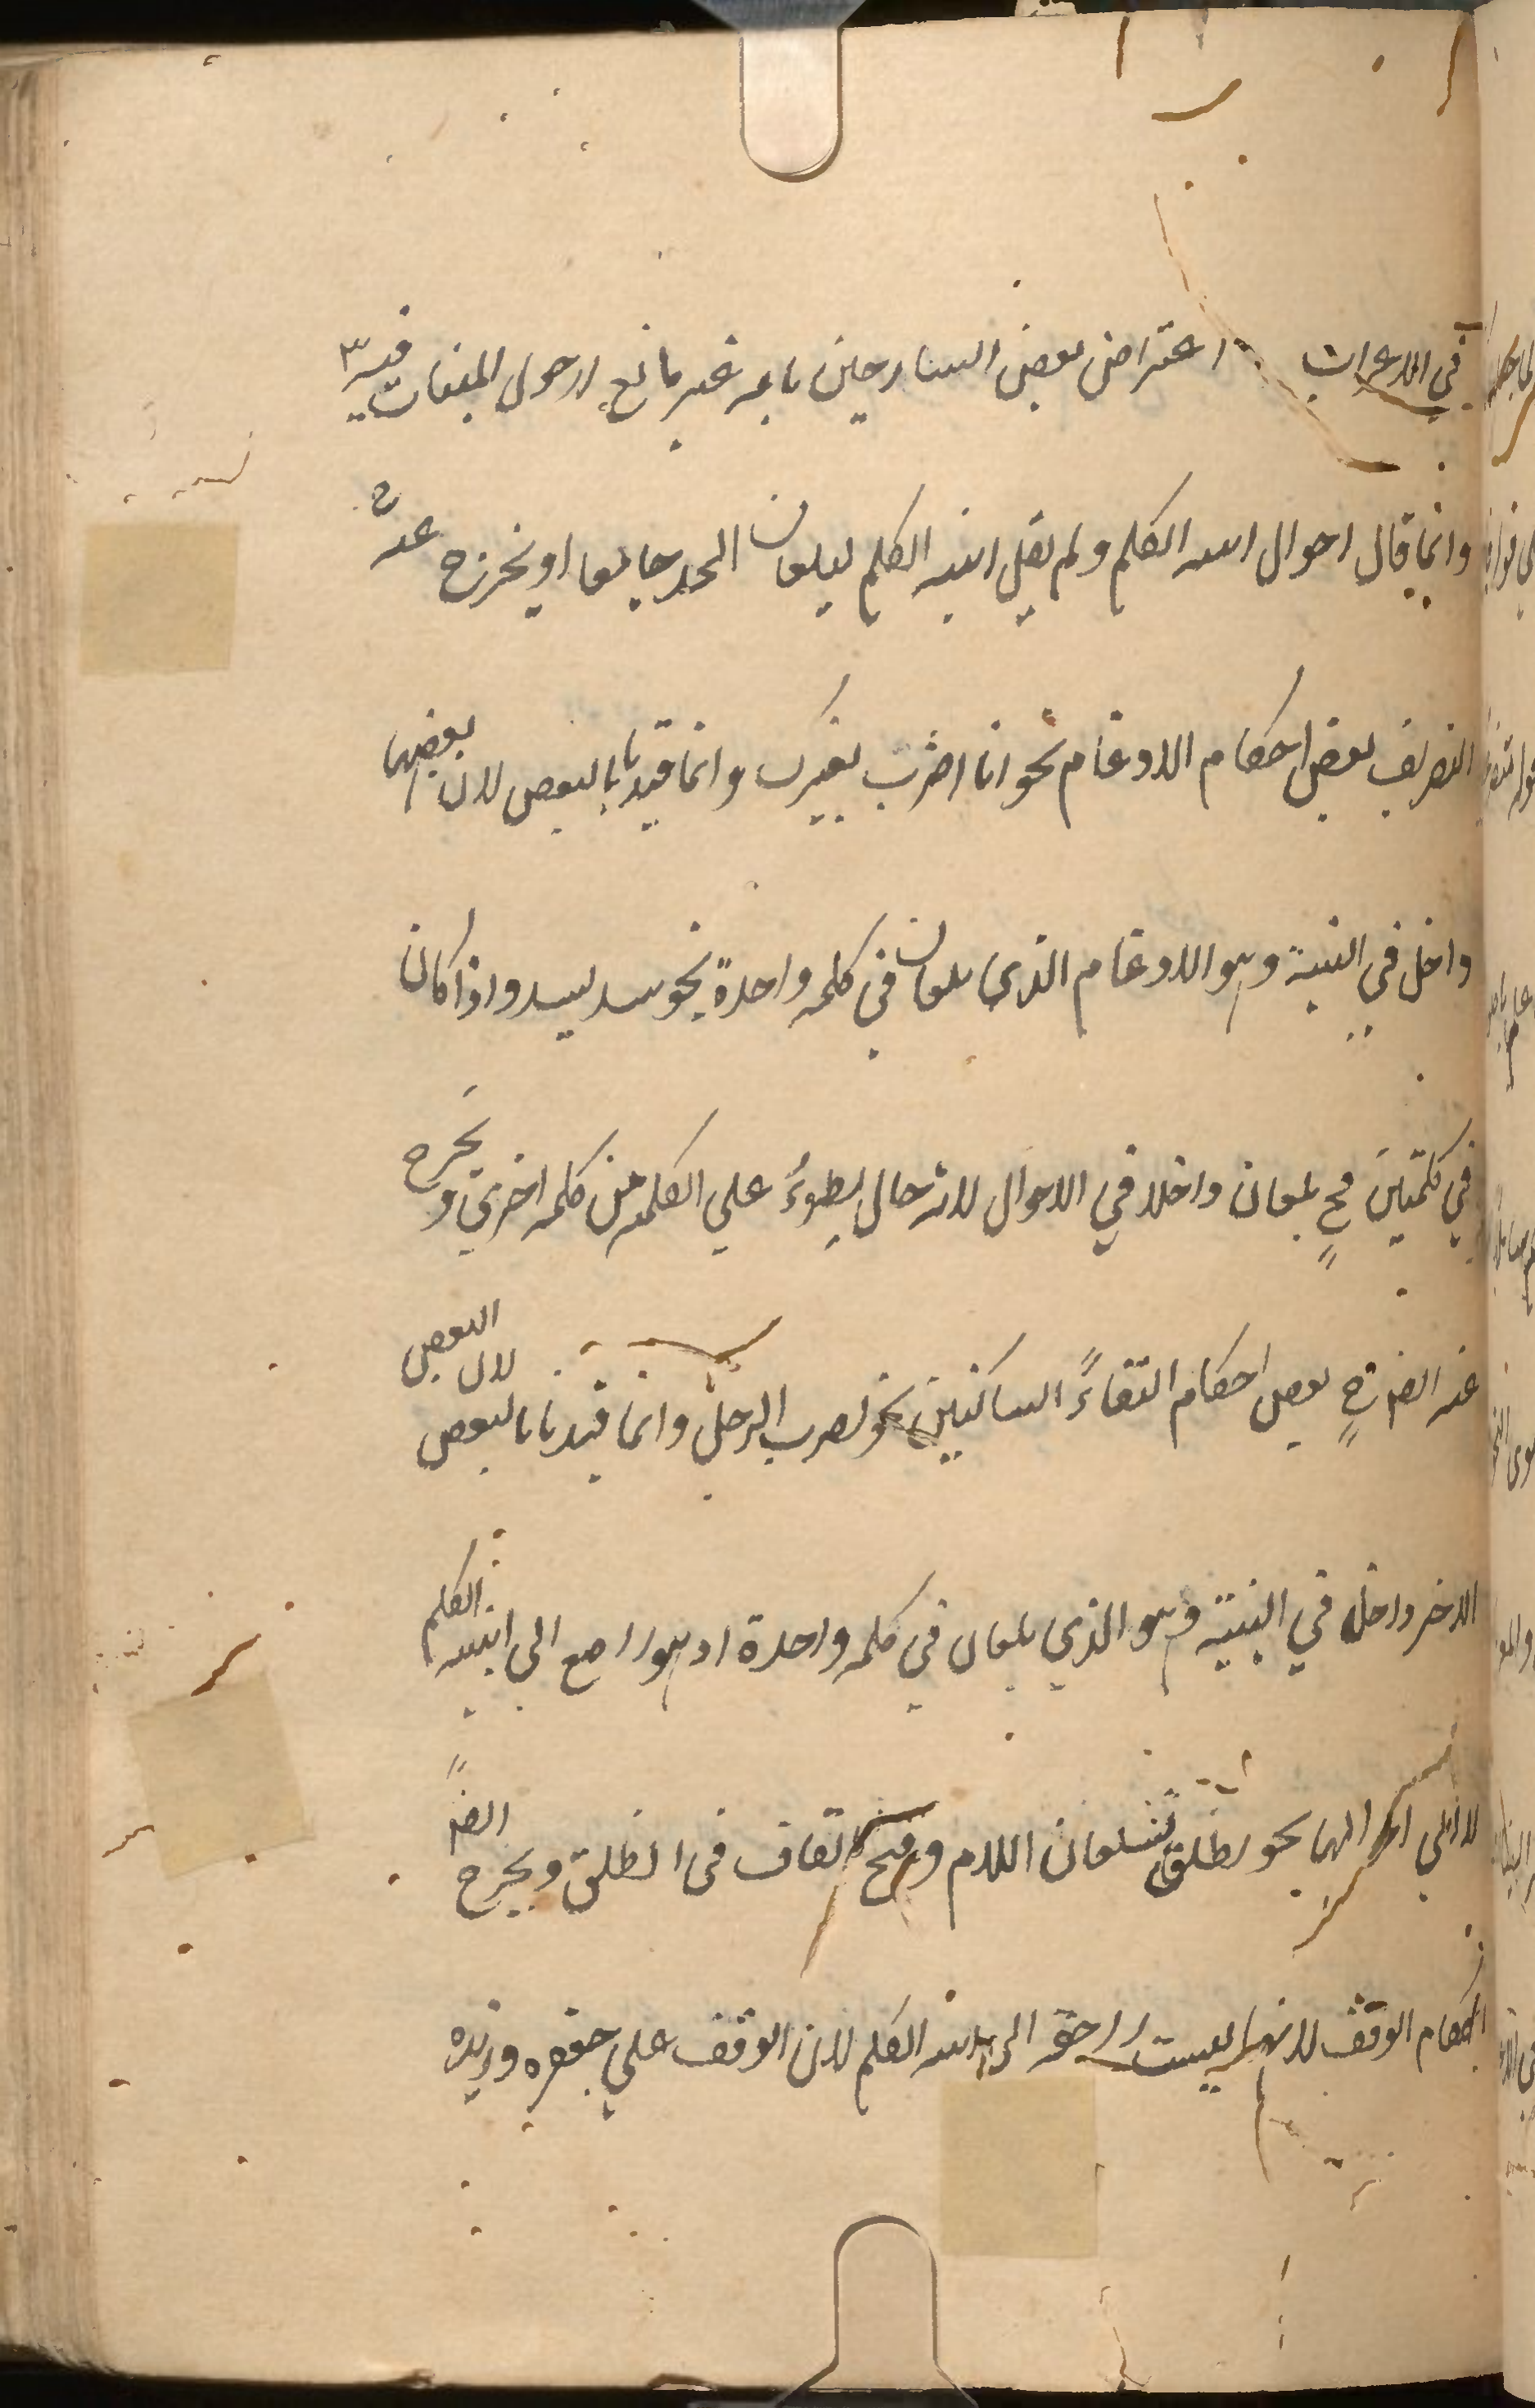 في الاعراب اعتراض بعض الشارحين بانه غير مانع لدخول المبنيات فيه
وانما قال احوال ابنية الكلم ولم يقل ابنية الكلم ليكون الحد جامعا او يخرج عن
التصريف بعض احكام الادغام نحو انا اضرب بغيرك وانما قيدنا بالبعض لان بعضها
داخل في البنية وهو الادغام الذي يكون في كلمة واحدة نحو سد يسد واذا كان
في كلمتين فح يكون داخلا في الاحوال لانه حال يطرؤ علي الكلمة من كلمة اخري و يخرج
عنه ايضا ح بعض احكام التقاء الساكنين نحو اضرب الرجل وانما قيدنا بالبعض لان البعض
الاخر داخل في البنية وهو الذي يكون في كلمة واحدة اذ هو راجع الى ابنية الكلم
لا الي احوالها نحو انطلق بسكون اللام وفتح القاف في انطلق ويخرج ايضا
احكام الوقف لانها ليست راجعة الى ابنية الكلم لان الوقف علي جعفر وزيد